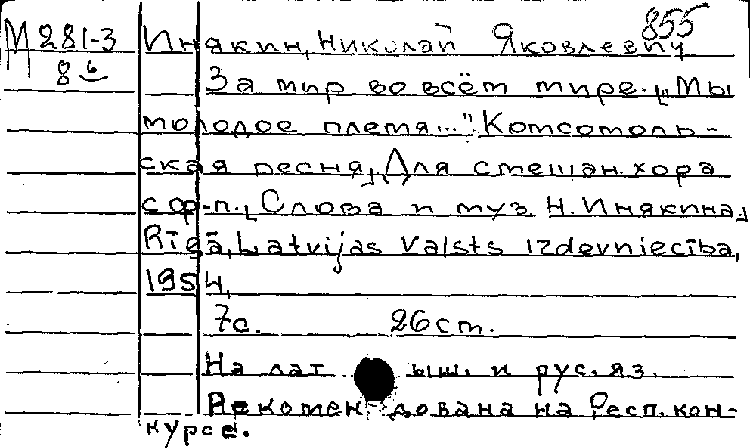 855
М281-3 Инякин, Николай Яковлевич
8 6
За мир во всём мире. ["Мы
молодое племя..." Комсомоль-
ская песня]. Для смешан. хора
с ф-п. [Слова и муз. Н. Инякина]
Rīgā, Latvijas Valsts izdevniecība,
1954.
7с. 26см.
На латыш. и рус. яз.
Рекомендована на Респ. кон-
курсе.